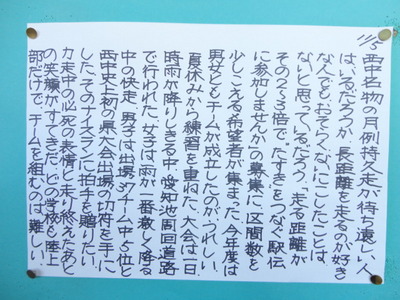 11/5
西中名物の月例持久走が待ち遠しい人
はいるだろうか。長距離を走るのが好き
な人でも、おそらくないにこしたことは
ないと思っているだろう。「走る距離が
その2、3倍で"たすき"をつなぐ駅伝
に参加しませんか」の募集に、区間数を
少しこえる希望者が集まった。今年度は
男女ともチームが成立したのがうれしい。
夏休みから練習を重ねた。大会は一日
時雨が降りしきる中、愛知池周回道路
で行われた。女子は雨が一番激しく降る
中の快走、男子は出場37チーム中5位と
西中史上初の県大会出場の切符を手に
した。そのナイスランに拍手を贈りたい。
力走中の必死の表情と走り終えたあと
の笑顔がすてきだ。どの学校も陸上
部だけで、チームを組むのは難しい。